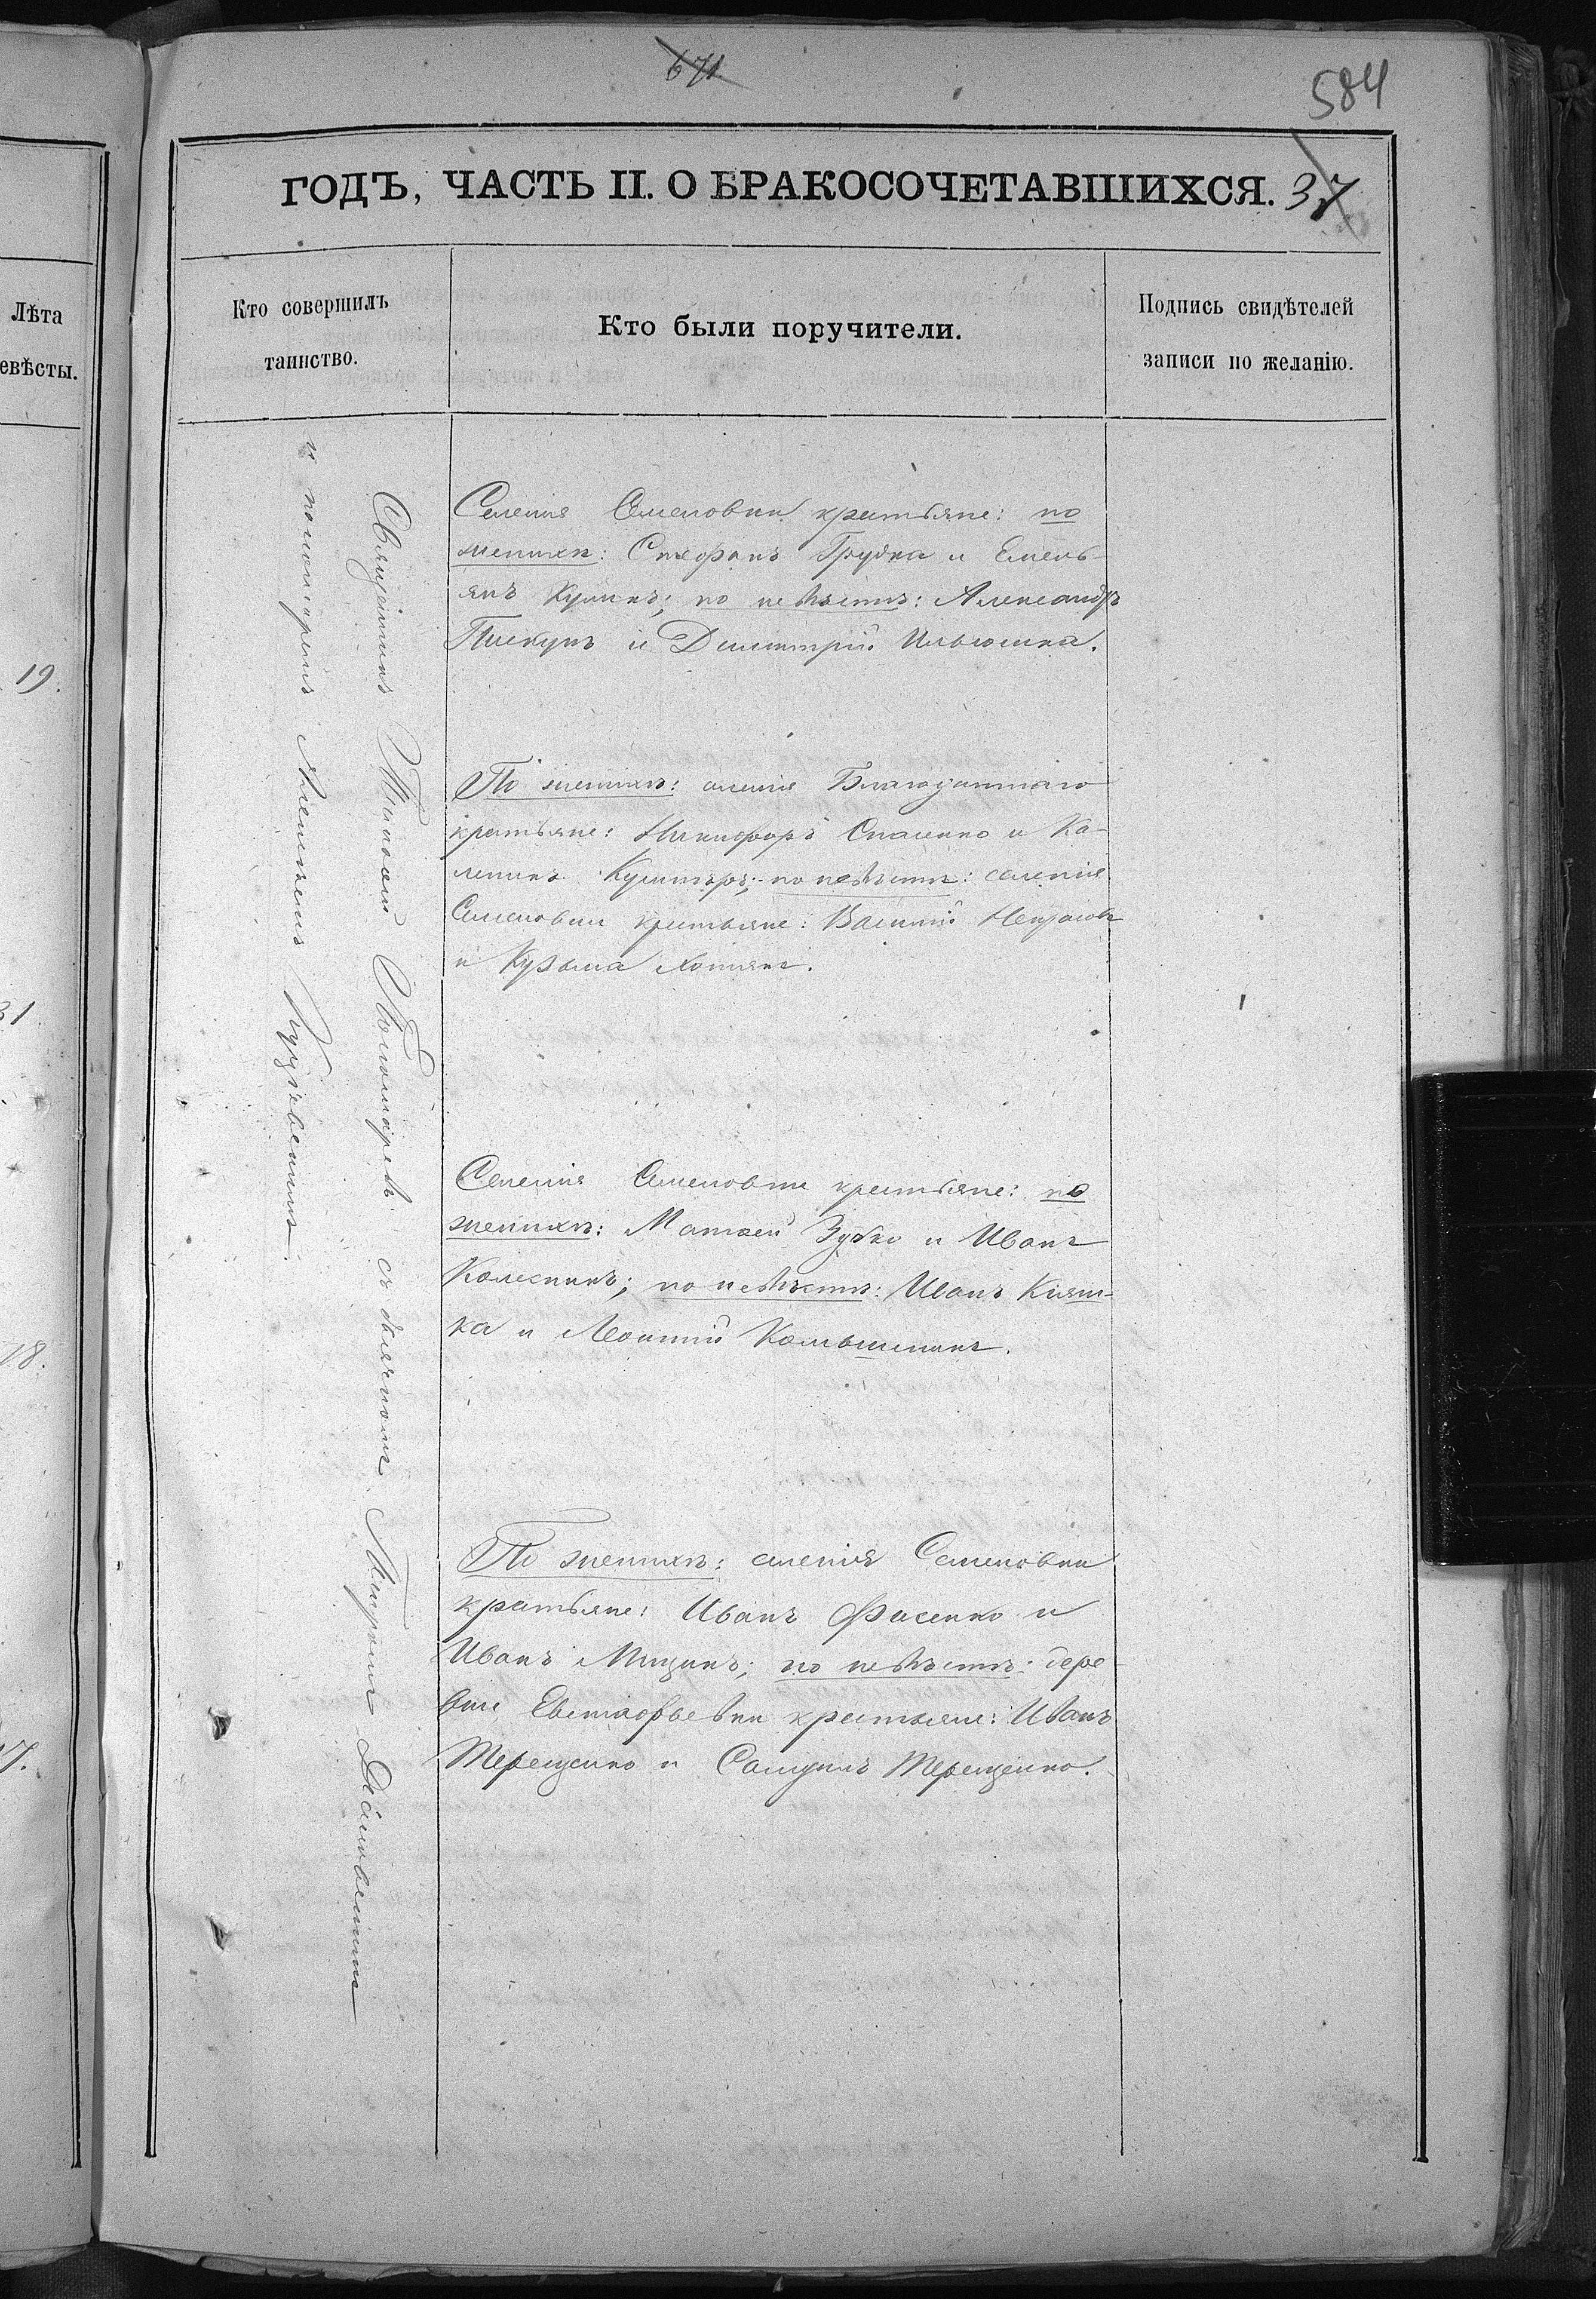 671
584
ГОДЪ, ЧАСТЬ II. О БРАКОСОЧЕТАВШИХСЯ. 37
Лѣта
евѣсты.
Кто совершилъ
таинство.
Кто были поручители.
Подпись свидѣтелей
записи по желанію.
19.
31
18.
17.
Священникъ Тимоѳей Пономаревъ съ дьячкомъ
и пономаремъ Алексѣемъ
Селенія Семеновки крестьяне: по
женихѣ: Стефанъ Грудка и Емель-
янъ Куликъ; по невѣстѣ: Александръ
Пискунъ и Димитрій Ильюшка.
По женихѣ: селенія Благодатнаго
крестьяне: Никифоръ Спасенко и Ка-
леникъ Кушнѣръ; по невѣстѣ: селенія
Семеновки крестьяне: Василій Некрасовъ
и Кузьма Хотянъ.
Селенія Семеновки крестьяне: по
женихѣ: Матѳей Зубко и Иванъ
Колесникъ; по невѣстѣ: Иванъ Кіяш-
ка и Леонтій Колышенинъ.
По женихѣ: селенія Семеновки
крестьяне: Иванъ Фисенко и
Иванъ Мицикъ; по невѣстѣ: дере-
вни Евстафьевки крестьяне: Иванъ
Терещенко и Самуилъ Терещенко.